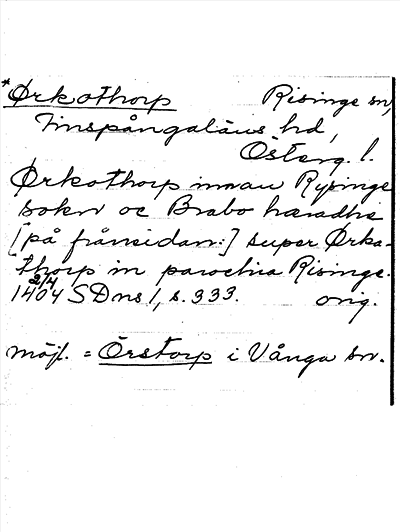 *Ørkathorp Risinge sn,
Finspångaläns hd,
Österg. l.
Ørkathorp innan Rysinge
sokn oc Brabo hæradhe
[på frånsidan:] super Ørka-
thorp in parochia Risinge.
2/4
1404 SDns 1, s. 333. orig.
möjl. = Örstorp i Vånga sn.